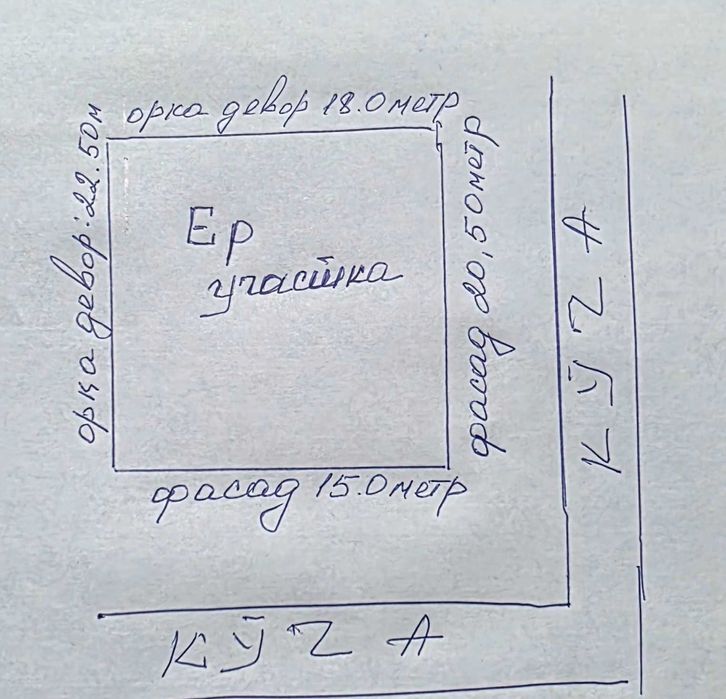 орка девор 18.0 метр
орқа девор: 22.50м
Ер
участка
фасад 20,50 метр
фасад 15.0 метр
КЎЧА
КЎЧА